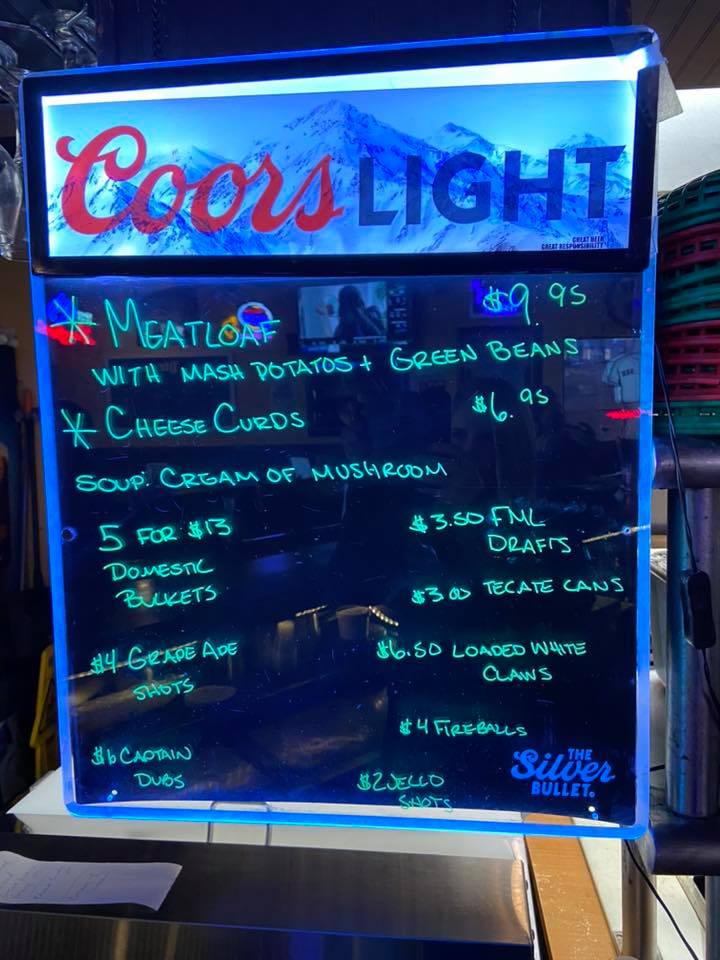 Coors LIGHT
GREAT BEER
GREAT RESPONSIBILITY
* MEATLOAF $9.95
WITH MASH POTATOS + GREEN BEANS
* CHEESE CURDS $6.95
SOUP: CREAM OF MUSHROOM
5 FOR $13
DOMESTIC
BUCKETS
$4 GRAPE APE
SHOTS
$6 CAPTAIN
DUBS
$3.50 FML
DRAFTS
$3.00 TECATE CANS
$6.50 LOADED WHITE
CLAWS
$4 FIREBALLS
$2 JELLO
SHOTS
THE
Silver
BULLET.